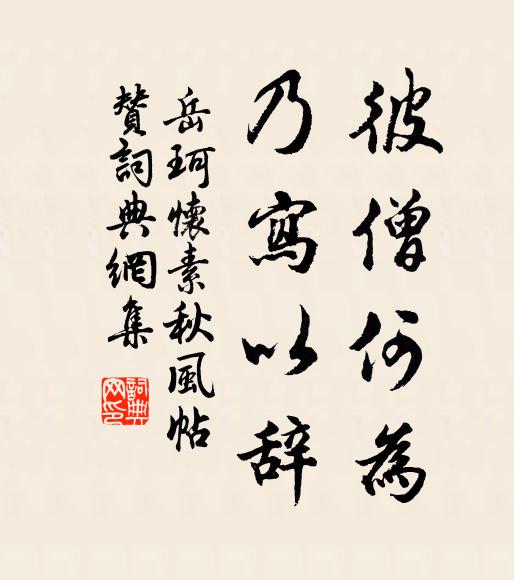 彼僧何為
乃寫以辞
岳珂懷素秋風帖
贊詞典網集
詞典网印